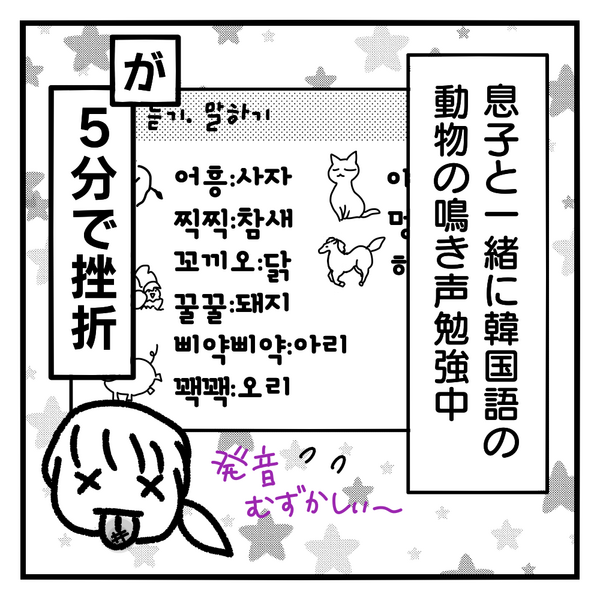 息子と一緒に韓国語の
動物の鳴き声勉強中
が
5分で挫折
듣기. 말하기
어흥:사자
찍찍:참새
꼬끼오:닭
꿀꿀:돼지
삐약삐약:아리
꽥꽥:오리
発音
むずかしぃ～